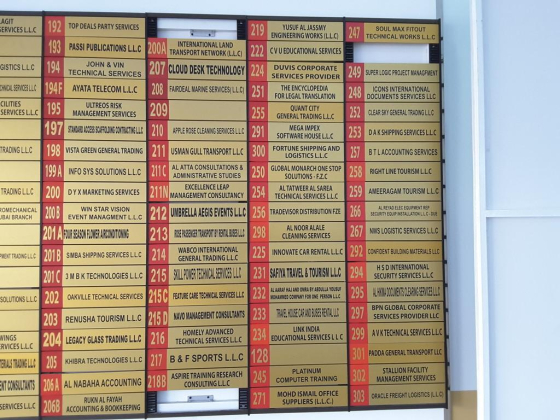 LAGIT
SERVICES L.L.C
GISTICS L.L.C
CHNICAL SERVICES L.L.C
CILITIES
SERVICES L.L.C
TRADING L.L.C
TRADING L.L.C
TRADING L.L.C
ROMECHANICAL
UBAI BRANCH
PMENT TRADING L.L.C
SOLUTIONS L.L.C
WINGS
SERVICES L.L.C
TERIALS TRADING L.L.C
ENT CONSULTANTS
OLUTIONS L.L.C
192 TOP DEALS PARTY SERVICES
193 PASSI PUBLICATIONS L.L.C
194 JOHN & VIN
TECHNICAL SERVICES
194F AYATA TELECOM L.L.C
195 ULTREOS RISK
MANAGEMENT SERVICES
197 STANDARD ACCESS SCAFFOLDING CONTRACTING L.L.C
198 VISTA GREEN GENERAL TRADING
199A INFO SYS SOLUTIONS L.L.C
200 D Y X MARKETING SERVICES
200B WIN STAR VISION
EVENT MANAGMENT L.L.C
201A FOUR SEASON FLOWER AIRCONDITIONING
201B SMBA SHIPPING SERVICES
201C 3 M B K TECHNOLOGIES L.L.C
202 OAKVILLE TECHNICAL SERVICES
203 RENUSHA TOURISM L.L.C
204 LEGACY GLASS TRADING L.L.C
205 KHIBRA TECHNOLOGIES L.L.C
206A AL NABAHA ACCOUNTING
206B RUKN AL FAYAH
ACCOUNTING & BOOKKEEPING
200A INTERNATIONAL LAND
TRANSPORT NETWORK (L.L.C)
207 CLOUD DESK TECHNOLOGY
208 FAIRDEAL MARINE SERVICES( L.L.C)
209
210 APPLE ROSE CLEANING SERVICES L.L.C
211 USMAN GULL TRANSPORT L.L.C
211C AL ATTA CONSULTATIONS &
ADMINISTRATIVE STUDIES
211N EXCELLENCE LEAP
MANAGEMENT CONSULTANCY
212 UMBRELLA AEGIS EVENTS L.L.C
213 ROSE PASSENGER TRANSPORT BY RENTAL BUSES L.L.C
214 WABCO INTERNATIONAL
GENERAL TRADING L.L.C
215 SKILL POWER TECHNICAL SERVICES L.L.C
215C FEATURE CARE TECHNICAL SERVICES L.L.C
215D NAVO MANAGEMENT CONSULTANTS
216 HOMELY ADVANCED
TECHNICAL SERVICES L.L.C
217 B & F SPORTS L.L.C
218B ASPIRE TRAINING RESEARCH
CONSULTING L.L.C
219 YUSUF AL JASSMY
ENGINEERING WORKS (L.L.C)
222 C V U EDUCATIONAL SERVICES
224 DUVIS CORPORATE
SERVICES PROVIDER
251 THE ENCYCLOPEDIA
FOR LEGAL TRANSLATION
255 QUANT CITY
GENERAL TRADING L.L.C
291 MEGA IMPEX
SOFTWARE HOUSE L.L.C
300 FORTUNE SHIPPING AND
LOGISTICS L.L.C
250 GLOBAL MONARCH ONE STOP
SOLUTIONS - F.Z.C
254 AL TATWEER AL SAREA
TECHNICAL SERVICES L.L.C
256 TRADEVISOR DISTRIBUTION FZE
298 AL NOOR ALALE
CLEANING SERVICES
225 INNOVATE CAR RENTAL L.L.C
231 SAFIYA TRAVEL & TOURISM L.L.C
232 AL ASRAF HAJ AND UMRA BY ABDULLA YOUSUF
MOHAMMED COMPANY FOR ONE PERSON L.L.C
233 TRAVEL HOUSE CAR AND BUSES RENTAL L.L.C
234 LINK INDIA
EDUCATIONAL SERVICES L.L.C
128
245 PLATINUM
COMPUTER TRAINING
271 MOHD ISMAIL OFFICE
SUPPLIERS (L.L.C.)
247 SOUL MAX FITOUT
TECHNICAL WORKS L.L.C
249 SUPER LOGIC PROJECT MANAGEMENT
248 ICONS INTERNATIONAL
DOCUMENTS SERVICES L.L.C
252 CLEAR SKY GENERAL TRADING L.L.C
253 D A K SHIPPING SERVICES L.L.C
257 B T L ACCOUNTING SERVICES
258 RIGHT LINE TOURISM L.L.C
259 AMEERAGAM TOURISM L.L.C
266 AL REYAD ELEC EQUIPMENT REP
SECURITY EQUIP INSTALLATION L.L.C - DUB
267 NMS LOGISTIC SERVICES L.L.C
292 CONFIDENT BUILDING MATERIALS L.L.C
294 H S D INTERNATIONAL
SECURITY SERVICES L.L.C
295 AL HIKMA DOCUMENTS CLEARING SERVICES L.L.C
297 BPN GLOBAL CORPORATE
SERVICES PROVIDER L.L.C
299 A V K TECHNICAL SERVICES L.L.C
301 PADDA GENERAL TRANSPORT L.L.C
302 STALLION FACILITY
MANAGEMENT SERVICES
303 ORACLE FREIGHT LOGISTICS L.L.C